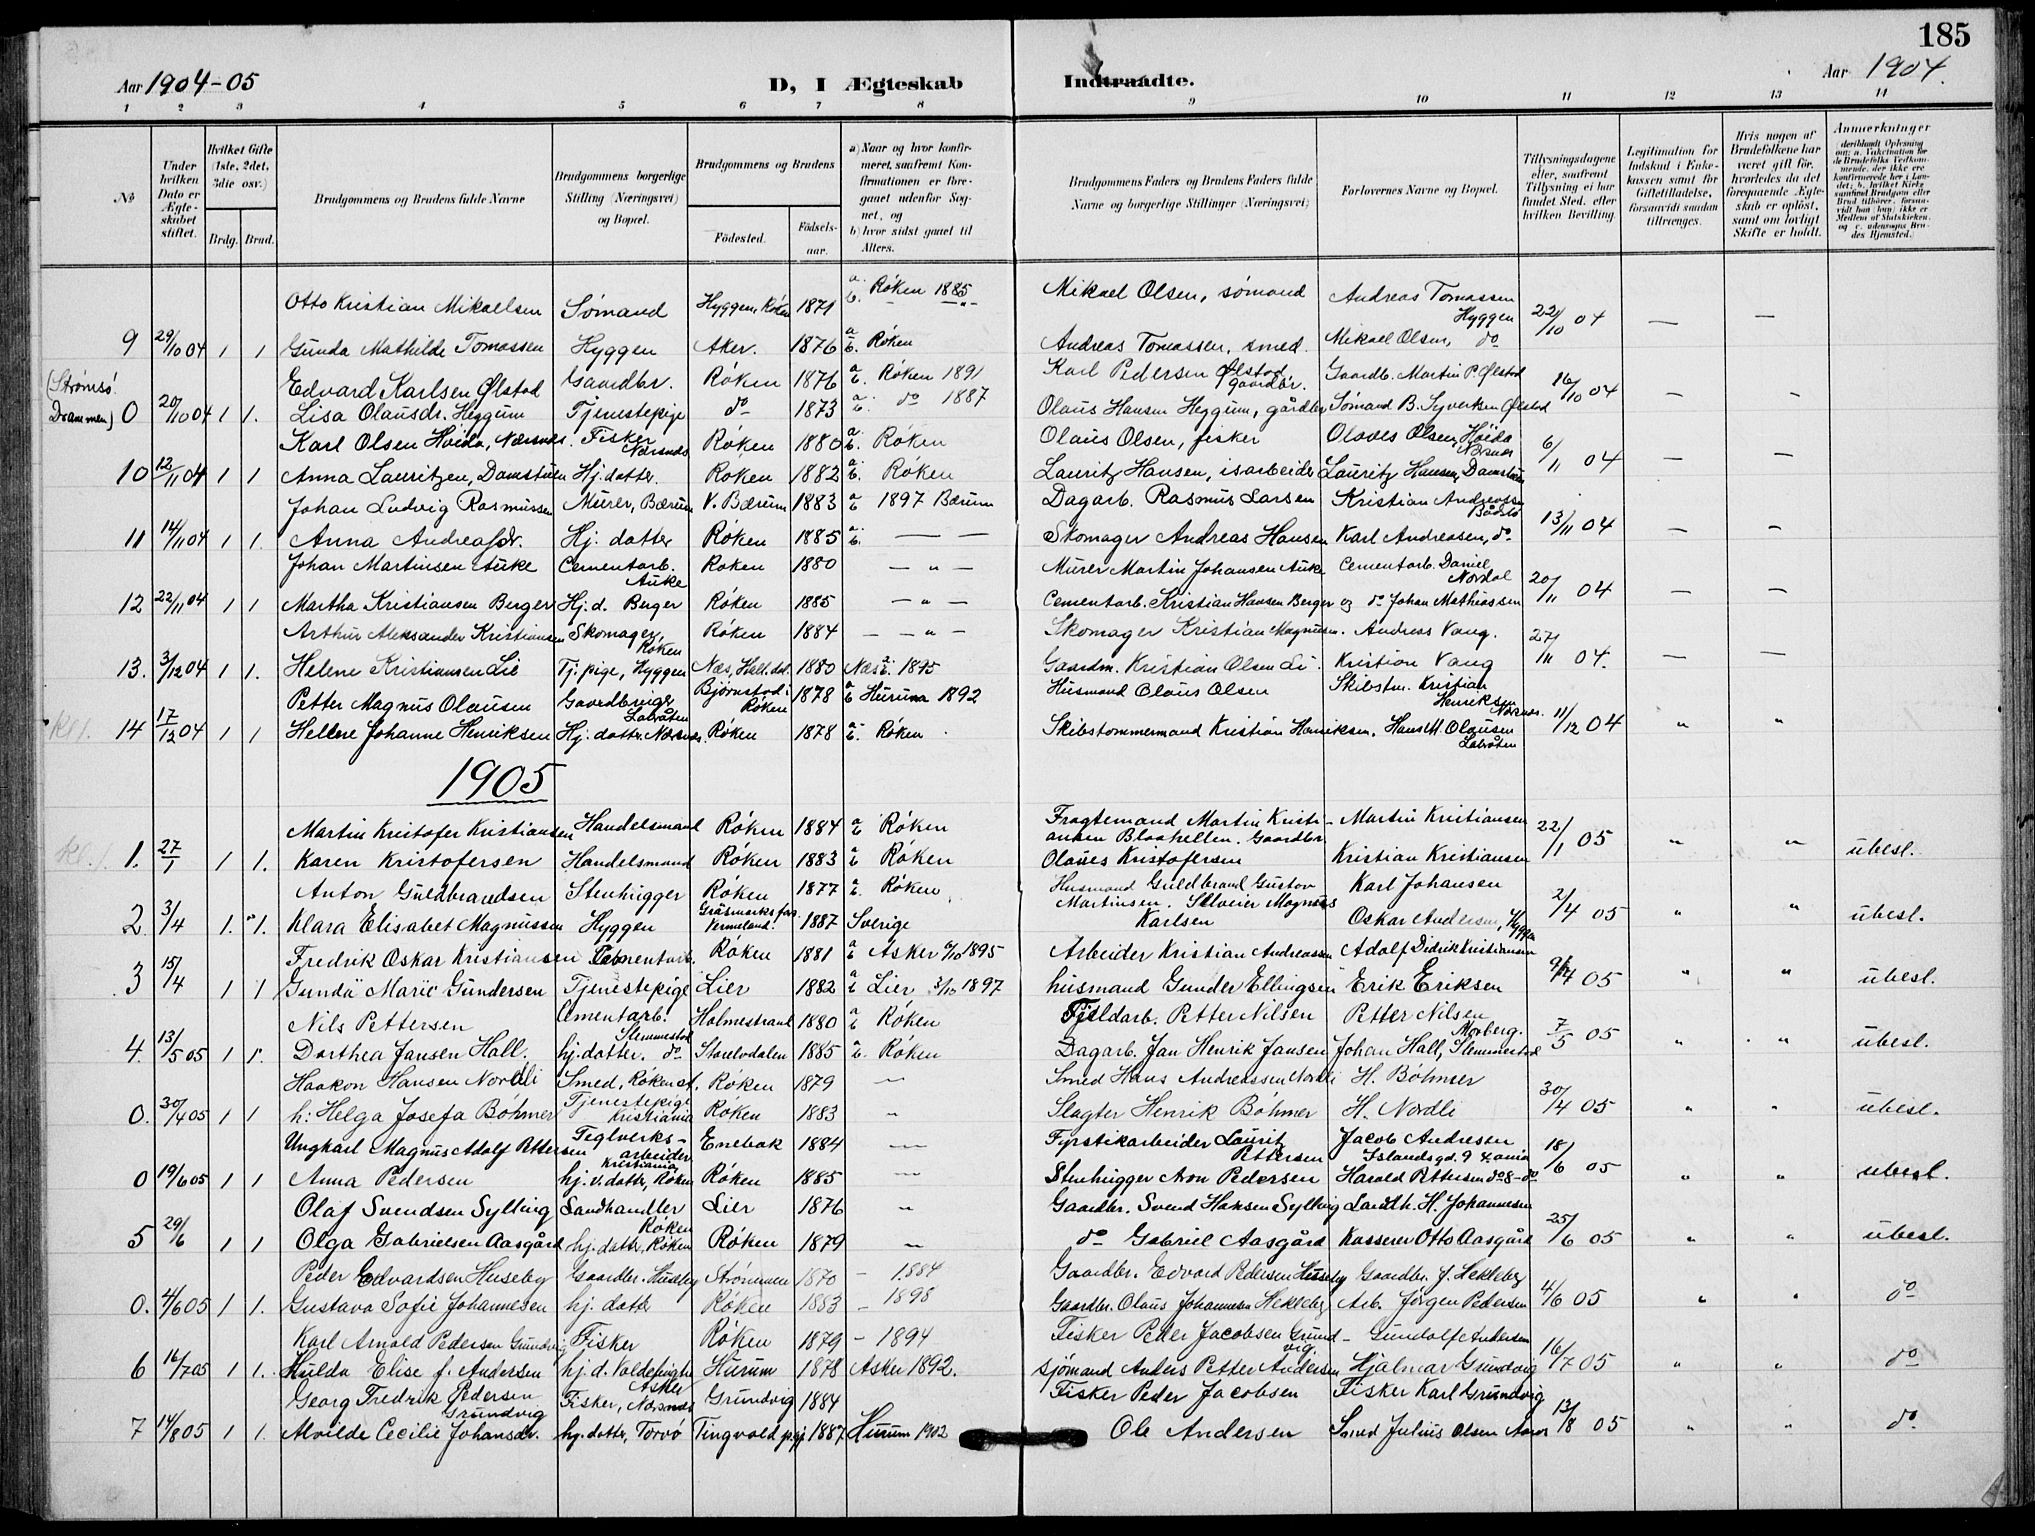 185
Aar 1904-05
D, I Ægteskab Indtraadte.
Aar 1904.
1 2 3 4 5 6 7 8 9 10 11 12 13 14
No
Under hvilken Dato er Ægteskabet stiftet.
Hvilket Gifte (1ste, 2det, 3die osv.)
Brdg. Brud.
Brudgommens og Brudens fulde Navne
Brudgommens borgerlige Stilling (Næringsvei) og Bopæl.
Brudgommens og Brudens
Födested.
Födsels-aar.
a) Naar og hvor konfirmeret, saafremt Konfirmationen er foregaaet udenfor Sognet, og
b) hvor sidst gaaet til Alters.
Brudgommens Faders og Brudens Faders fulde Navne og borgerlige Stillinger (Næringsvei)
Forlovernes Navne og Bopæl.
Tillysningsdagene eller, saafremt Tillysning ei har fundet Sted, efter hvilken Bevilling.
Legitimation for Indskud i Enkekassen samt for Giftetilladelse, forsaavidt saadan tiltrænges.
Hvis nogen af Brudefolkene har været gift för, hvorledes da det foregaaende Ægteskab er oplöst, samt om lovligt Skifte er holdt.
Anmærkninger
Otto Kristian Mikaelsen Sømand Hyggen, Røken 1871 a. b. Røken 1885 Mikael Olsen, sømand Andreas Tomassen Hyggen 22/10 04 — —
9 29/10 04 1 1 Gunda Mathilde Tomassen Hyggen Aker. 1876 a b. Røken Andreas Tomassen, smed. Mikael Olsen, do
Edvard Karlsen Ølstad Gaardbr. Røken 1876 a b. Røken 1891 Karl Pedersen Ølstad, gaardbr. Gaardb. Martin P. Ølstad 16/10 04 — —
(Strømsö Drammen) 0 20/10 04 1 1. Lisa Olausdr. Heggum Tjenestepige do 1873 a b. do 1887 Olaus Hansen Heggum, gårdbr Sømand B. Syvertsen Ølstad
Karl Olsen Høida, Nærsnes. Fisker Nærsnes Røken 1880 a. b. Røken Olaus Olsen, fisker Olaves Olsen, Høida Nærsnes 6/11 04 — —
10 12/11 04 1 1 Anna Lauritzen, Damstuen Hj. datter. Røken 1882 a b. Røken Lauritz Hansen, isarbeider Lauritz Hansen, Damstuen
Johan Ludvig Rasmussen Murer, Bærum V. Bærum 1883 a b 1897 Bærum Dagarb. Rasmus Larsen Kristian Andreassen Bådstø 13/11 04 — —
11 14/11 04 1 1. Anna Andreasdr. Hj. datter Røken 1885 a. b. — — Skomager Andreas Hansen Karl Andreasen, do
Johan Martinsen Auke Cementarb. Auke Røken 1880 — " — Murer Martin Johansen Auke Cementarb. Daniel Nordal 20/11 04 — —
12 22/11 04 1 1 Martha Kristiansen Berger Hj. d. Berger Røken 1885 — " — Cementarb. Kristian Hansen Berger og do Johan Mathiassen
Arthur Aleksander Kristiansen Skomager, Røken Røken 1884 — — " — Skomager Kristian Magnusn. Andreas Vang. 27/11 04. — —
13. 3/12 04 1 1. Helene Kristiansen Lie Tj. pige, Hyggen Næs, Hall.dal. 1880 Næs 1895 Gaardm. Kristian Olsen Li. Kristian Vang
Petter Magnus Olausen Gaardbruger Labråten Bjørnstad i Røken 1878 a b Hurum 1892 Husmand Olaus Olsen Skibstm. Kristian Henriksen Nærsnes. 11/12 04 " "
kl 1. 14 17/12 04 1 1 Hellene Johanne Henriksen Hj. dattr. Nærsnes. Røken 1878 a b. Røken Skibstommermand Kristian Henriksen. Hans M. Olausen Labråten
1905
Martin Kristofer Kristiansen Handelsmand Røken 1884 a b Røken Fragtemand Martin Kristiansen Blaahellen. Gaardbr. Martin Kristiansen 22/1 05 " "
kl. 1. 1. 27/1 1 1. Karen Kristofersen Handelsmand Røken 1883 a b Røken Olaves Kristofersen Kristian Kristiansen ubesl.
Anton Guldbrandsen Stenhugger Røken 1877 a b. Røken Husmand Guldbrand Gustav Martinsen. Karl Johansen 2/4 05 " "
2. 3/4 1. 1. Klara Elisabet Magnussen Hyggen Gräsmarks fors. Vermeland. 1887 Sverige Magnus Karlsen Oskar Andersen, Hyggen ubesl.
Fredrik Oskar Kristiansen Cementarb. Røken 1881 a b Asker 6/10 1895 Arbeider Kristian Andreassen Adolf Didrik Kristiansen 9/4 05 " "
3 15/4 1 1 Gunda Marie Gundersen Tjenestepige Lier 1882 a b Lier 3/10 1897 husmand Gunder Ellingsen Erik Eriksen ubesl.
Nils Pettersen Cmentarb. Slemmestad Holmestrand 1880 a b Røken Fjeldarb. Petter Nilsen Petter Nilsen Morberg. 7/5 05 " "
4. 13/5 05 1 1. Dorthea Jansen Hall. hj. datter. do Storelvdalen 1885 a b. Røken Dagarb. Jan Henrik Jansen Johan Hall, Slemmestad ubesl.
Haakon Hansen Nordli Smed, Røken st. Røken 1879 — Smed Hans Andreassen Nordli H. Böhmer 30/4 05 " "
0. 30/4 05 1 1 h: Helga Josefa Böhmer Tjenestepige Kristiania Røken 1883 " Slagter Henrik Böhmer H. Nordli ubesl.
Ungkarl Magnus Adolf Pettersen Teglverksarbeider Kristiania Enebak 1884 — Fyrstikarbeider Laurits Pettersen Jacob Andresen Islandsgd. 9 Kr.ania 18/6 05 " "
0 19/6 05 1 1 Anna Pedersen hj. v. datter, Røken Røken 1885 — Stenhugger Aron Pedersen Harald Pettersen do 8 - do ubesl.
Olaf Svendsen Sylling Landhandler Røken Lier 1876 " Gaardbr. Svend Hansen Sylling Landh. H. Johannesen 25/6 05 " "
5 29/6 1 1 Olga Gabrielsen Aasgård hj. datter, Røken Røken 1879 — do Gabriel Aasgård Kasserer Otto Aasgård ubesl.
Peder Edvardsen Huseby Gaardbr. Huseby Strømmen 1870 — 1884 Gaardbr. Edvard Pedersen Huseby Gaardbr. J. Hekleberg 4/6 05 " "
0. 4/6 05 1 1. Gustava Sofie Johannesen hj. datter Røken 1883 — 1898 Gaardbr. Olaus Johannesen Hekleberg Arb. Jörgen Pedersen do
Karl Arnold Pedersen Grundvig Fisker Røken 1879 — 1894 Fisker Peder Jacobsen Grundvig Gundolf Andersen 16/7 05 " "
6 16/7 05 1 1. Hulda Elise f. Andersen hj. d. Asker Hurum 1878 Asker 1892. sjömand Anders Petter Andersen Hjalmar Grundvig do
Georg Fredrik Pedersen Grundvig Fisker, Nærsnes Grundvig 1884 Fisker Peder Jacobsen Fisker Karl Grundvig 13/8 05 " "
7 14/8 05 1 1. Alvilde Cecilie Johansdr. hj. datter, Torvö Tingvold pgj 1887 Hurum 1902 Ole Andersen Smed Julius Olsen do